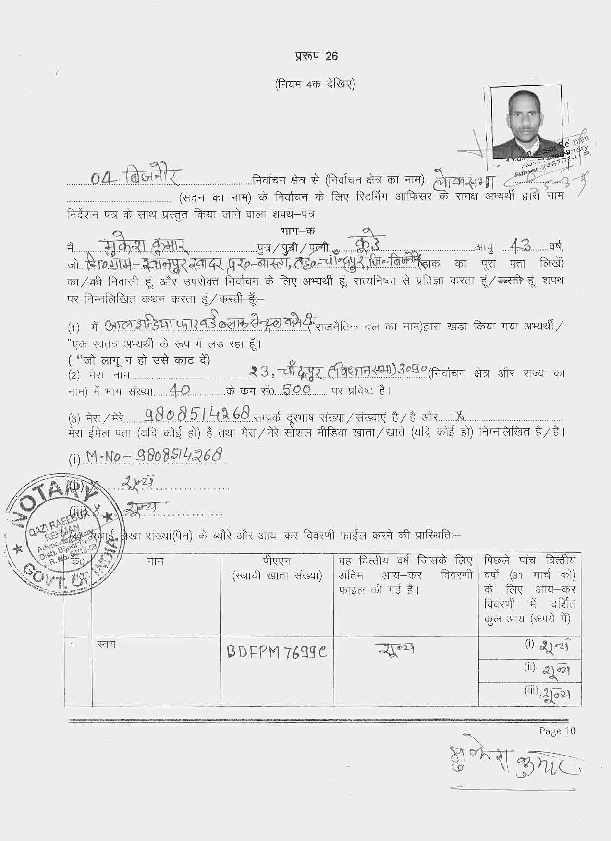 प्ररूप 26
(नियम 4क देखिए)
04 बिजनौर निर्वाचन क्षेत्र से (निर्वाचन क्षेत्र का नाम) लोकसभा
(सदन का नाम) के निर्वाचन के लिए रिटर्निंग आफिसर के समक्ष अभ्यर्थी द्वारा नाम
निर्देशन पत्र के साथ प्रस्तुत किया जाने वाला शपथ–पत्र
भाग–क
मैं मुकेश कुमार पुत्र/पुत्री/पत्नी आयु 43 वर्ष,
जो नि०ग्राम-खानपुर खादर, पर०-बास्टा, तह०-चाँदपुर, जि०-बिजनौर (डाक का पूरा पता लिखें)
का/की निवासी हूं, और उपरोक्त निर्वाचन के लिए अभ्यर्थी हूं, सत्यनिष्ठा से प्रतिज्ञा करता हूं/करती हूं, शपथ
पर निम्नलिखित कथन करता हूं/करती हूँ:–
(1) मैं आल इण्डिया फारवर्ड ब्लाक राजनैतिक दल का नाम)द्वारा खड़ा किया गया अभ्यर्थी/
*एक स्वतंत्र अभ्यर्थी के रूप में लड़ रहा हूँ।
( *जो लागू न हो उसे काट दें)
(2) मेरा नाम 23, चाँदपुर (विधानसभा) उ०प्र० (निर्वाचन क्षेत्र और राज्य का
नाम) में भाग संख्या 40 के क्रम सं० 500 पर प्रविष्ट है।
(3) मेरा/मेरे 9808514268 सम्पर्क दूरभाष संख्या/संख्याएं है/हैं और X
मेरा ईमेल पता (यदि कोई हो) है तथा मेरा/मेरे सोशल मीडिया खाता/खाते (यदि कोई हो) निम्नलिखित है/हैं।
(i) M-No- 9808514268
शून्य
शून्य
लेखा संख्या(पैन) के ब्यौरे और आय कर विवरणी फाईल करने की प्रास्थिति:–
NOTARY
QAZI RAEEDUR
REHMAN
GOVT. OF INDIA
नाम पीएएन वह वित्तीय वर्ष जिसके लिए पिछले पांच वित्तीय
(स्थायी खाता संख्या) अंतिम आय–कर विवरणी वर्षों (31 मार्च को)
फाइल की गई है। के लिए आय–कर
विवरणी में दर्शित
कुल आय (रूपये में)
स्वयं BDFPM7699C शून्य (i) शून्य
(ii) शून्य
(iii) शून्य
Page 10
मुकेश कुमार